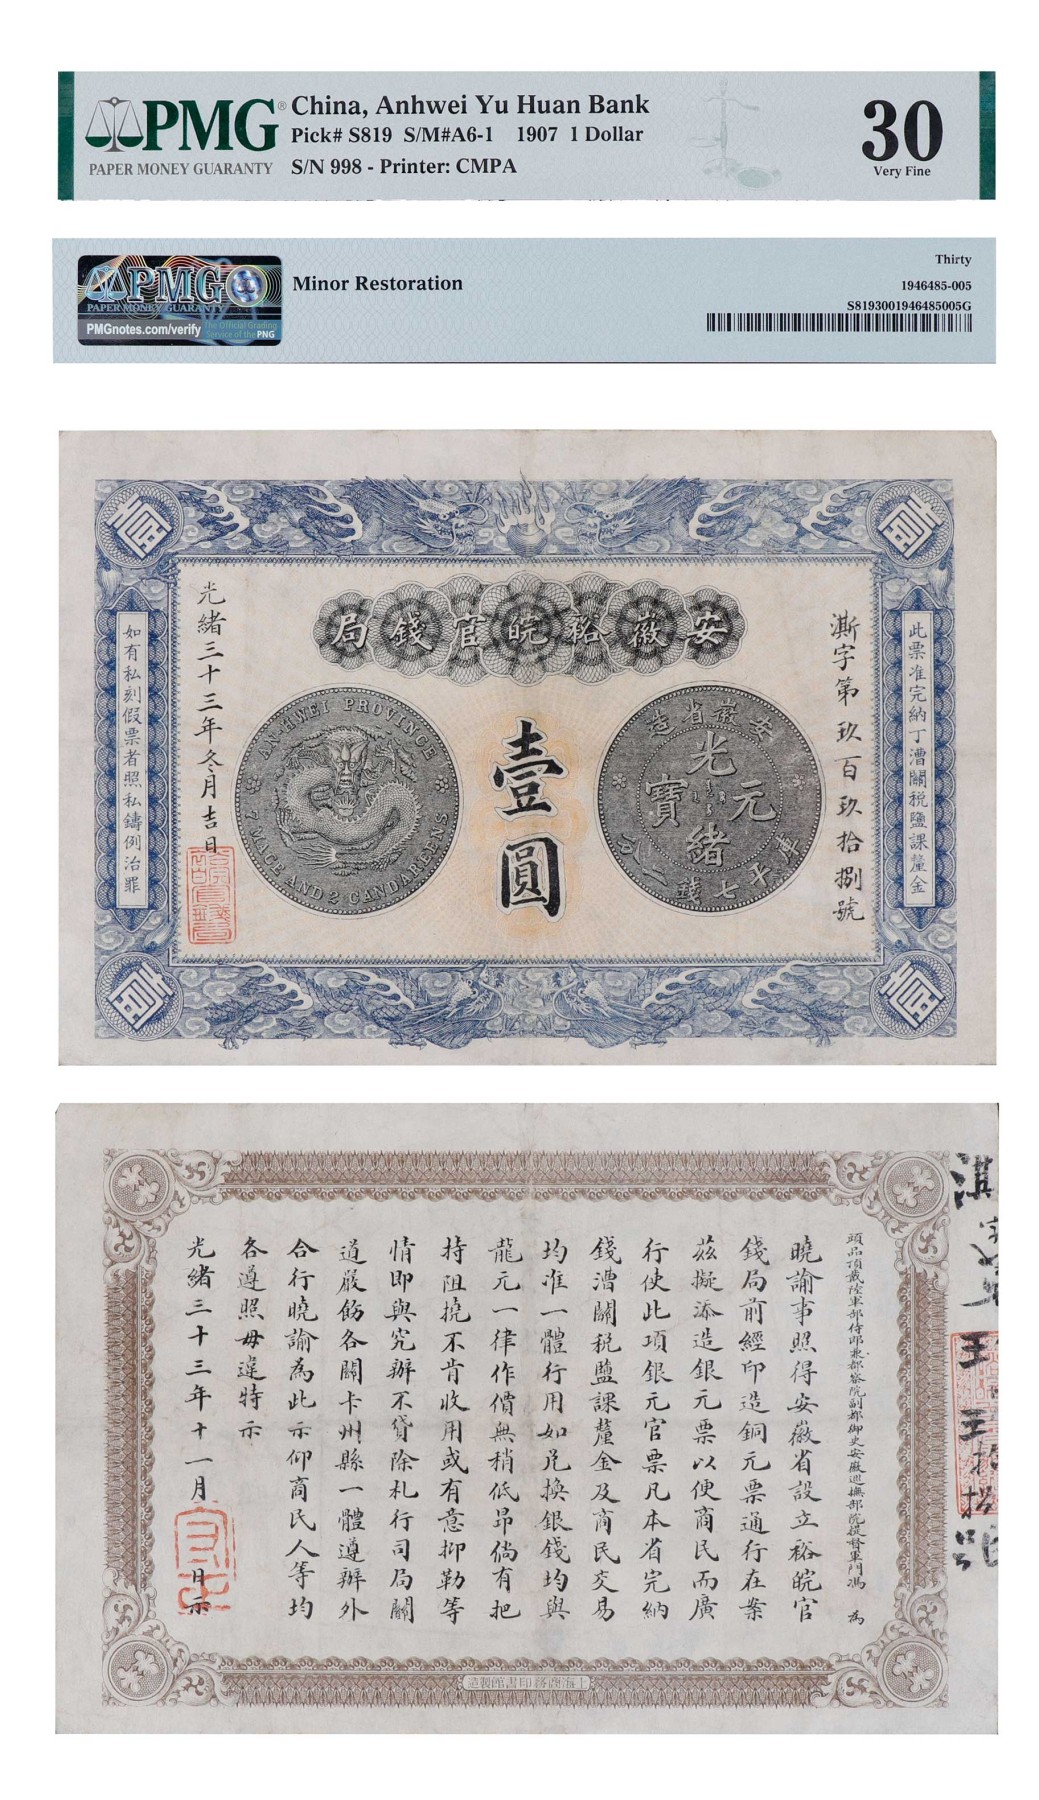 PMG®
PAPER MONEY GUARANTY
China, Anhwei Yu Huan Bank
Pick# S819 S/M#A6-1 1907 1 Dollar
S/N 998 - Printer: CMPA
30
Very Fine
PMG
PAPER MONEY GUARANTY
PMGnotes.com/verify
The Official Grading
Service of the PNG
Minor Restoration
Thirty
1946485-005
S8193001946485005G
壹
壹
局錢官皖裕徽安
此票准完納丁漕關稅鹽課釐金
澌字第玖百玖拾捌號
造省徽安
光緒元寶
庫平七錢二分
壹圓
AN-HWEI PROVINCE
7 MACE AND 2 CANDAREENS
光緒三十三年冬月吉日
如有私刻假票者照私鑄例治罪
壹
壹
頭品頂戴陸軍部侍郎兼都察院副都御史安徽巡撫部院提督軍門馮 為
曉諭事照得安徽省設立裕皖官
錢局前經印造銅元票通行在案
茲擬添造銀元票以便商民而廣
行使此項銀元官票凡本省完納
錢漕關稅鹽課釐金及商民交易
均准一體行用如兌換銀錢均與
龍元一律作價無稍低昂倘有把
持阻撓不肯收用或有意抑勒等
情即與究辦不貸除札行司局關
道嚴飭各關卡州縣一體遵辦外
合行曉諭為此示仰商民人等均
各遵照毋違特示
光緒三十三年十一月 日示
造製館書印務商海上